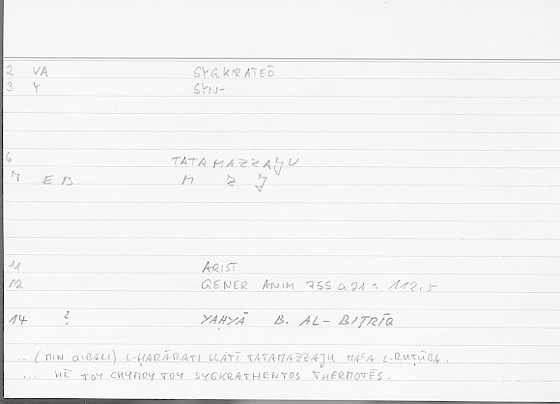 2 VA SYGKRATEŌ
3 Y SYN-
6 TATAMAZZAǦU
7 EB M Z Ǧ
11 ARIST
12 GENER ANIM 755 a 21 : 112,5
14 ? YAḤYĀ B. AL-BIṬRĪQ
... (MIN QIBALI) L-ḤARĀRATI LLATĪ TATAMAZZAǦU MAʿA L-RUṬŪBA.
... HĒ TOY CHYMOY TOY SYGKRATHENTOS THERMOTĒS.